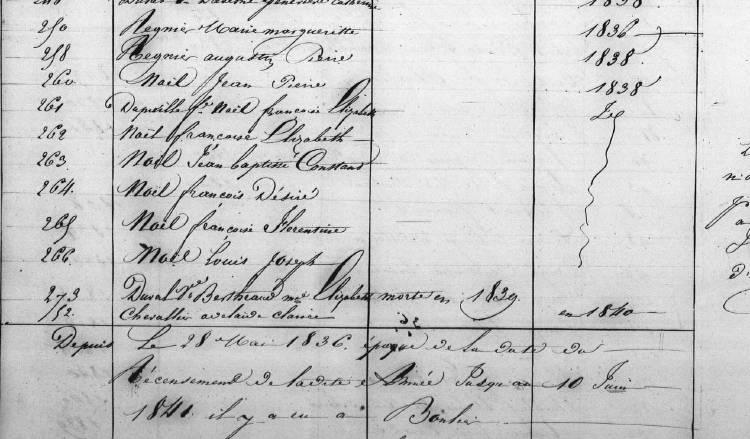 250 Regnier Marie marguerite 1836
258 Regnier augustin Pierre 1838
260 Noël Jean Pierre 1838
261 Noël françoise Elizabeth
262 Noël françoise Elizabeth
263 Noël Jean baptiste Constand
264 Noël françois Désiré
265 Noël françoise Florentine
266 Noël Louis Joseph
273 Duval Ve Bertheaud me Elizabeth morte en 1839
152 Chevallier adelaide claire en 1840
Depuis Le 28 Mai 1836 époque de la date du
Récensement de ladite Année Jusqu'au 10 Juin
1841 il y a eu a